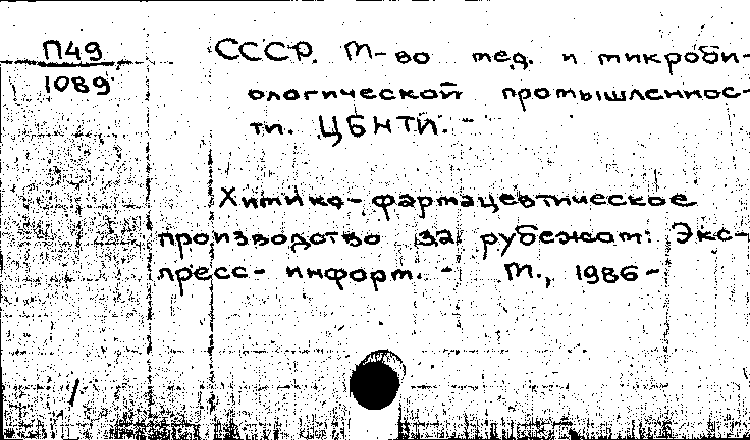 П49
1089
СССР. М-во мед. и микроби-
ологической промышленнос-
ти. ЦБНТИ. -
Химико-фармацевтическое
производство за рубежом: Экс-
пресс-информ. - М., 1986-